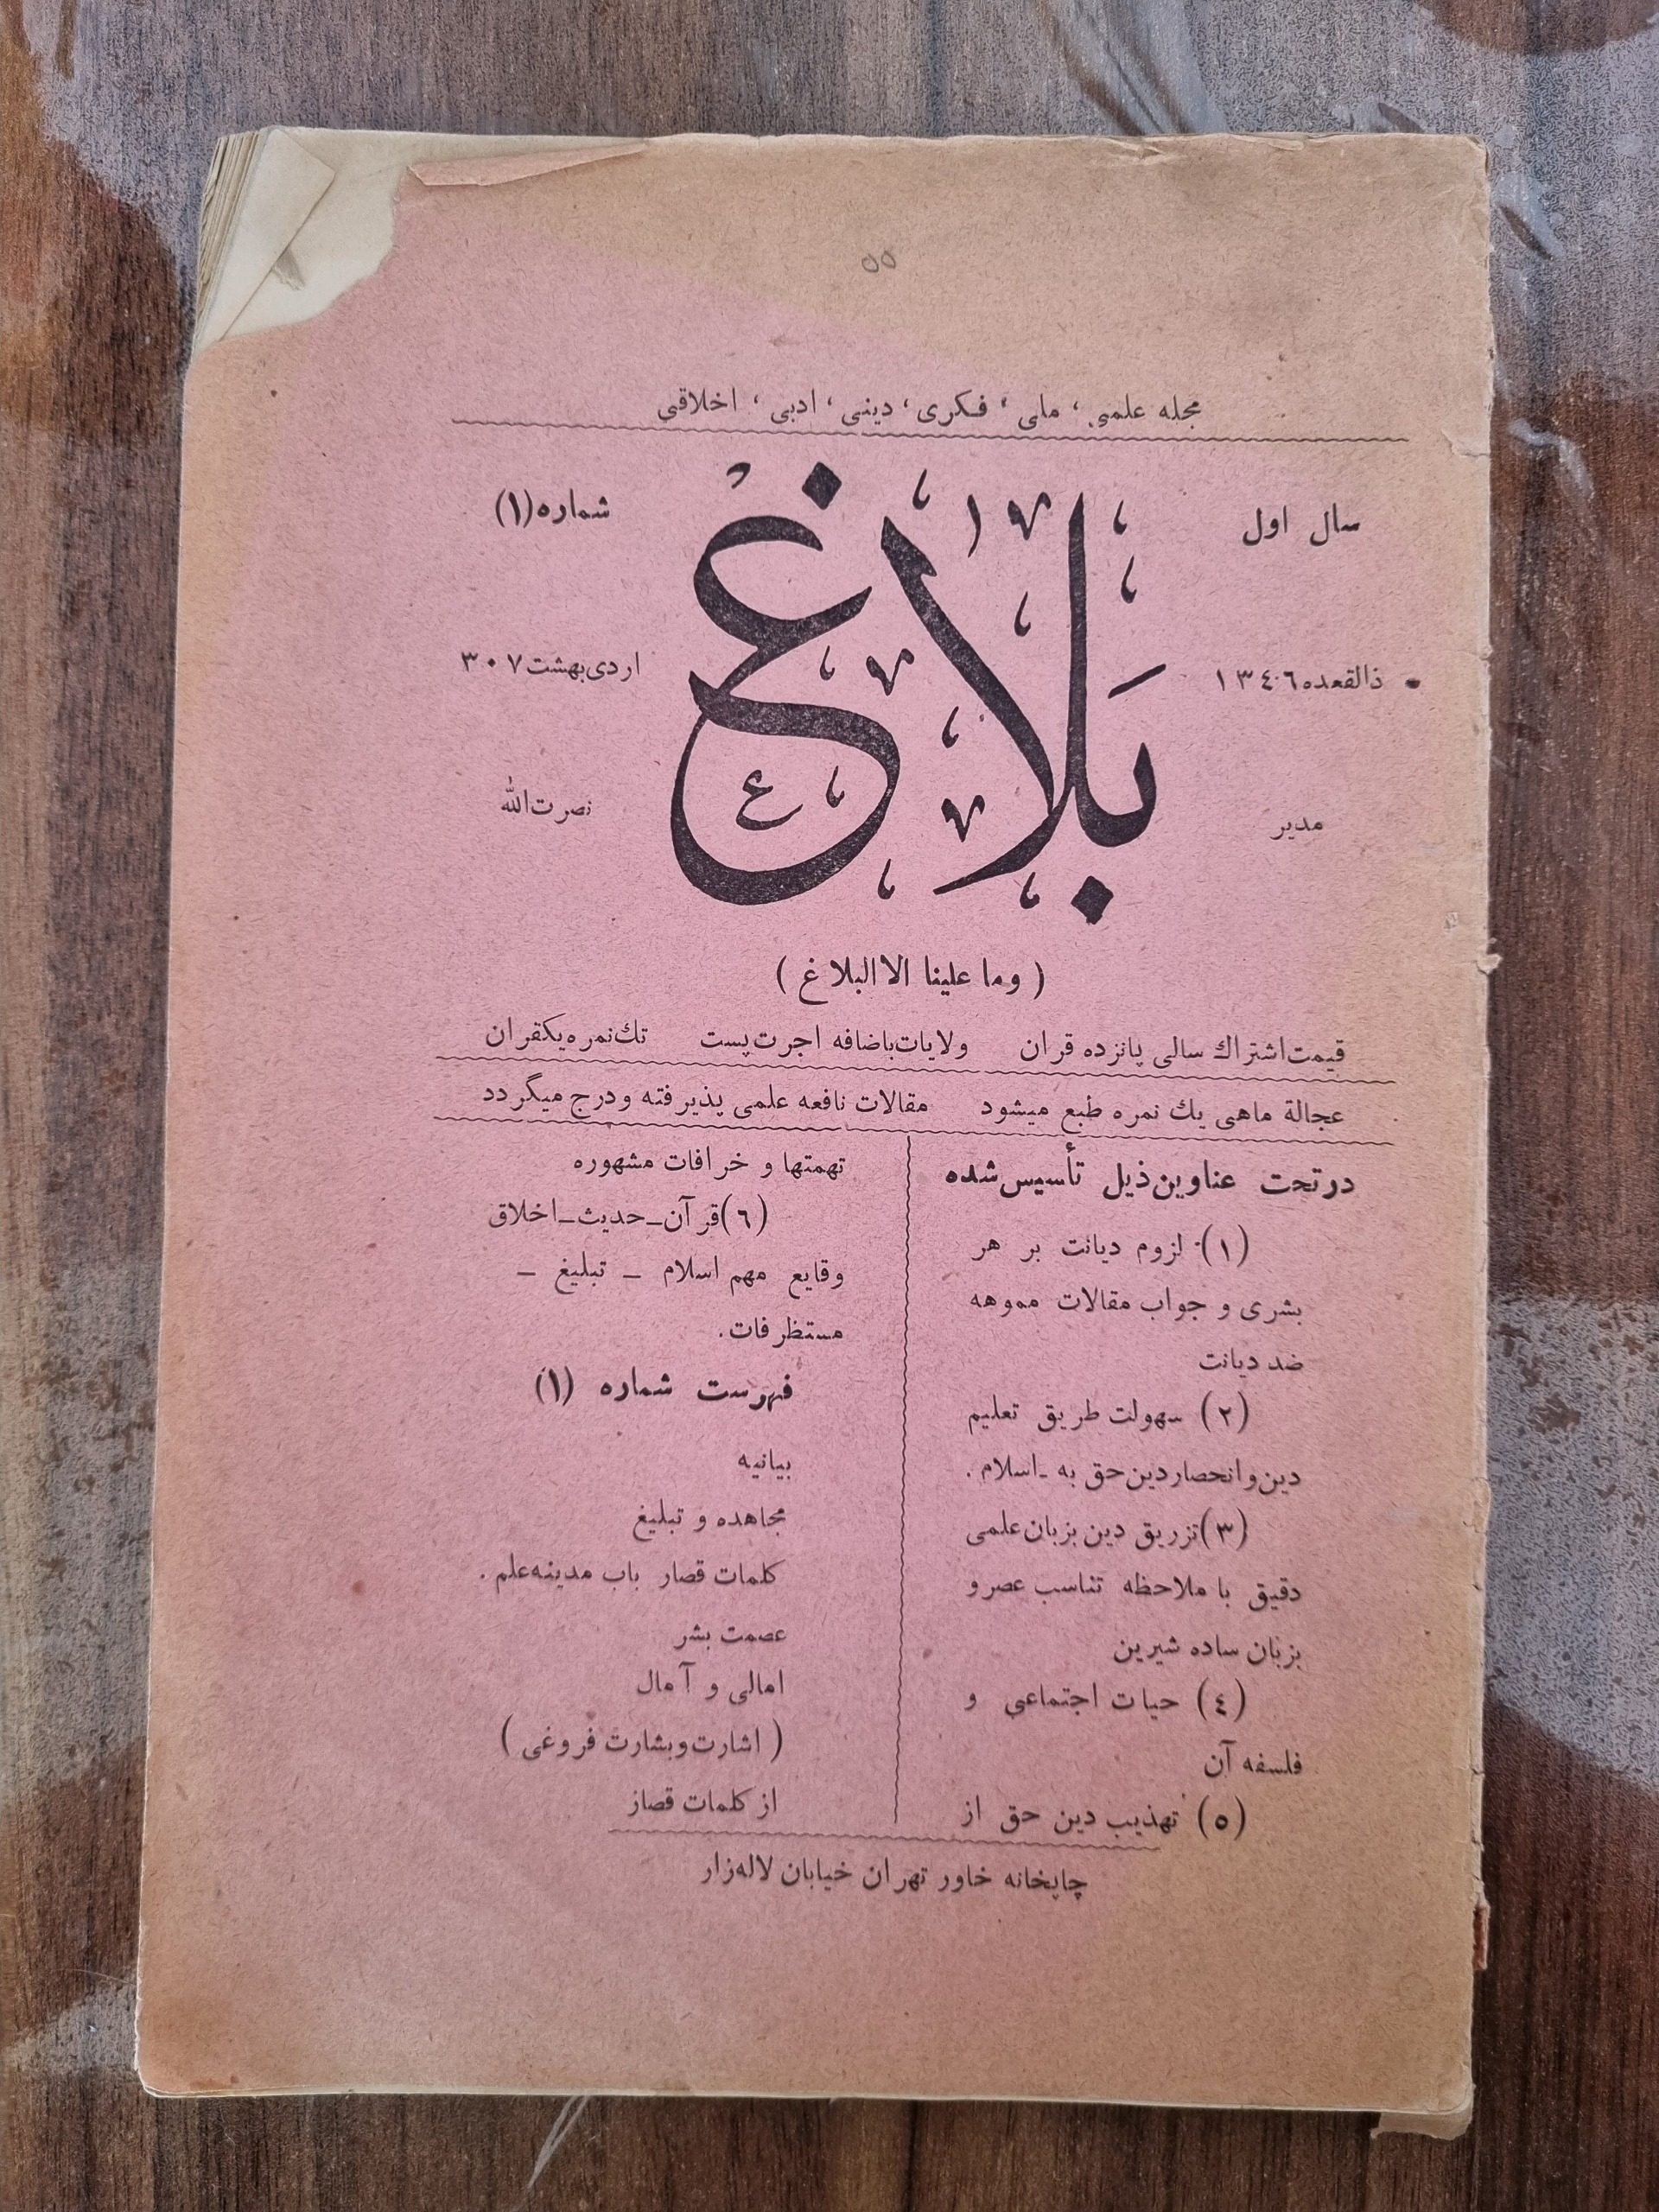 ۵۵
مجله علمی، ملی، فکری، دینی، ادبی، اخلاقی
سال اول
بَلاغ
شماره (۱)
ذالقعده ۱۳٤٦
اردی‌بهشت ۳۰۷
مدیر
نصرت‌الله
( وما علینا الاالبلاغ )
قیمت اشتراك سالی پانزده قران ولایات باضافه اجرت پست تك نمره یکقران
عجالة ماهی یك نمره طبع میشود مقالات نافعه علمی پذیرفته ودرج میگردد
درتحت عناوین ذیل تأسیس شده
(۱) لزوم دیانت بر هر
بشری و جواب مقالات مموهه
ضد دیانت
(۲) سهولت طریق تعلیم
دین وانحصار دین حق به ـ اسلام .
(۳) تزریق دین بزبان علمی
دقیق با ملاحظه تناسب عصر و
بزبان ساده شیرین
(٤) حیات اجتماعی و
فلسفه آن
(٥) تهذیب دین حق از
تهمتها و خرافات مشهوره
(٦) قرآن ـ حدیث ـ اخلاق
وقایع مهم اسلام ـ تبلیغ ـ
مستظرفات.
فهرست شماره (۱)
بیانیه
مجاهده و تبلیغ
کلمات قصار باب مدینه علم .
عصمت بشر
امالی و آمال
( اشارت و بشارت فروغی )
از کلمات قصاز
چاپخانه خاور تهران خیابان لاله‌زار